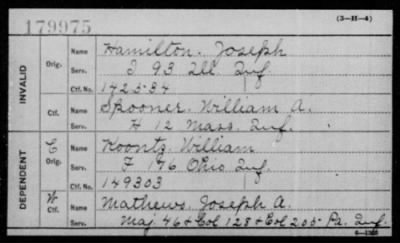 179975
(3-H-4)
INVALID
Orig.
Name Hamilton. Joseph
Serv. I 93 Ill Inf.
Ctf. No. 142534
Ctf.
Name Spooner. William A.
Serv. H 12 Mass. Inf.
DEPENDENT
C
Orig.
Name Koontz. William
Serv. F 176 Ohio Inf.
Ctf. No. 149303
W
Ctf.
Name Mathews. Joseph A.
Serv. Maj 46 + Col 128 + Col 205 Pa. Inf.